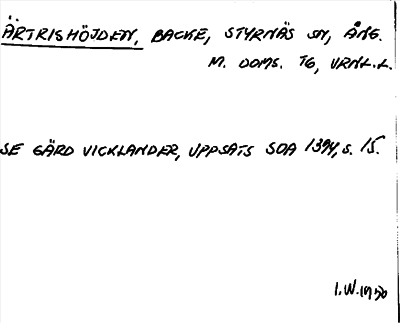 ÄRTRISHÖJDEN, BACKE, STYRNÄS SN, ÅNG.
M. DOMS. TG, VRML.L.
SE GÄRD VICKLANDER, UPPSATS SOA 1394, S. 15.
I.W. 1970